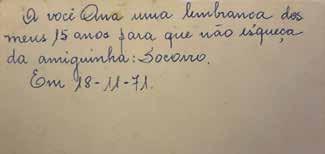 A você Ana uma lembrança dos
meus 15 anos para que não esqueça
da amiguinha: Socorro.
Em 18-11-71.